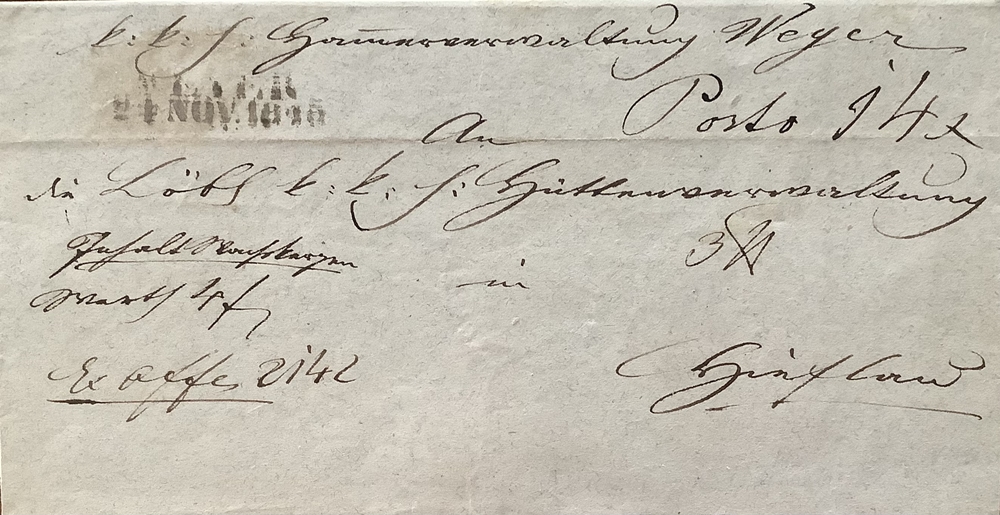 k: k: H: Ham̅erverwaltung Weyer
WEYER
24 NOV. 1845
Porto 14x
An
die Löbl k: k: H: Hüttenverwaltung
Inhalt Wachskerzen
3 ℔
in
Werth 4 f
Ex offo 2142
Hieflau